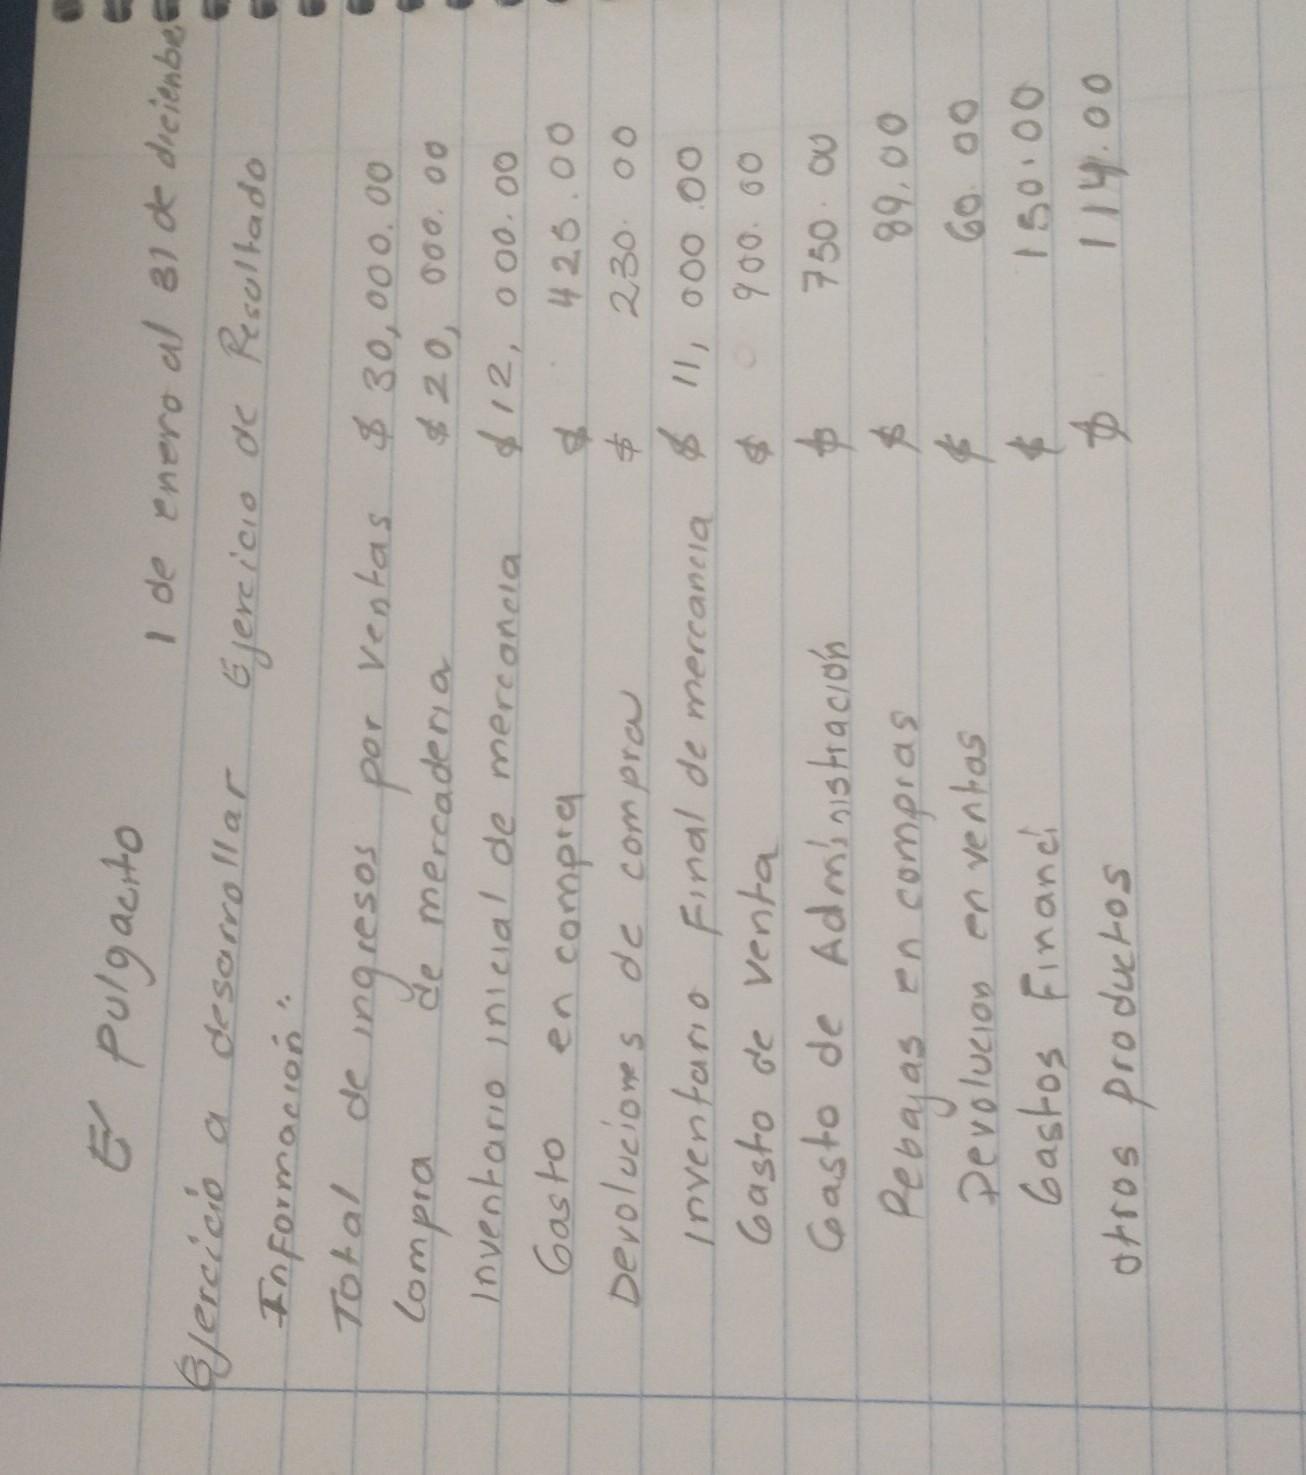 El Pulgacito
1 de enero al 31 de diciembe
Ejercicio a desarrollar Ejercicio de Resultado
Información:
Total de ingresos por ventas $ 30,000.00
Compra de mercaderia $ 20,000.00
Inventario inicial de mercancia $ 12,000.00
Gasto en compra $ 425.00
Devoluciones de compra $ 230.00
Inventario Final de mercancia $ 11,000.00
Gasto de venta $ 900.00
Gasto de Administración $ 750.00
Rebajas en compras $ 89.00
Devolucion en ventas $ 60.00
Gastos Financi $ 150.00
otros productos $ 114.00